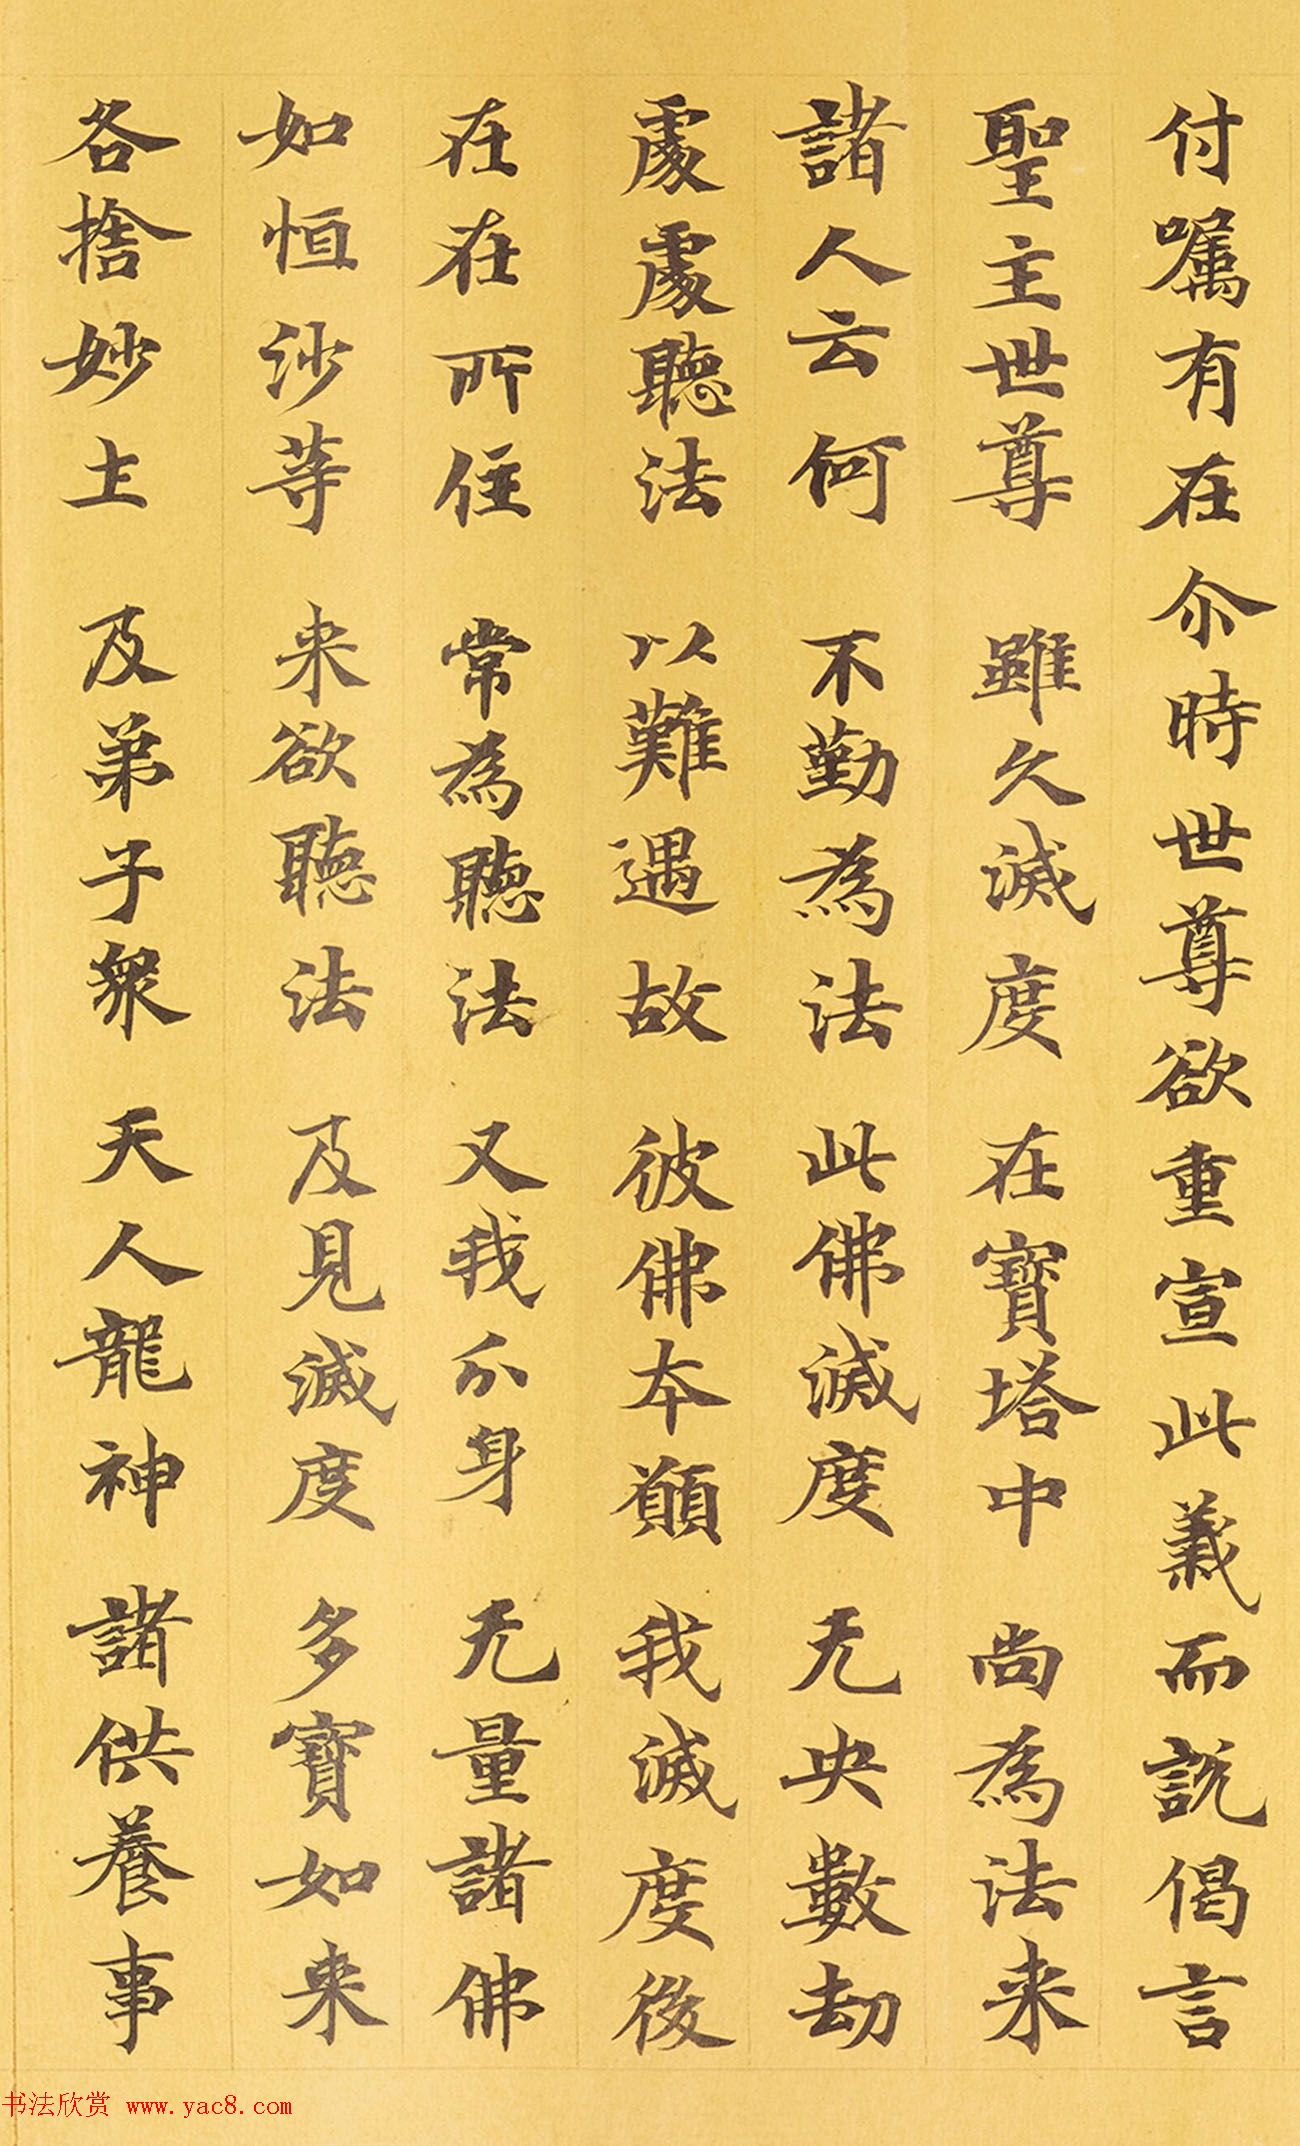 付囑有在尒時世尊欲重宣此義而說偈言
聖主世尊 雖久滅度 在寶塔中 尚為法来
諸人云何 不勤為法 此佛滅度 无央數劫
處處聽法 以難遇故 彼佛本願 我滅度後
在在所住 常為聽法 又我分身 无量諸佛
如恒沙等 来欲聽法 及見滅度 多寶如来
各捨妙土 及弟子眾 天人龍神 諸供養事
书法欣赏 www.yac8.com